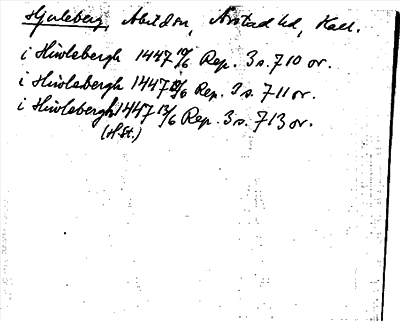 Hjuleberg, Abild sn, Årstad hd, Hall.
i Hiwlebergh 1447 12/6 Rep. 3 s. 710 or.
i Hiwlebergh 1447 12/6 Rep. 3 s. 711 or.
i Hiwlebergh 1447 13/6 Rep. 3 s. 713 or.
(H.St.)